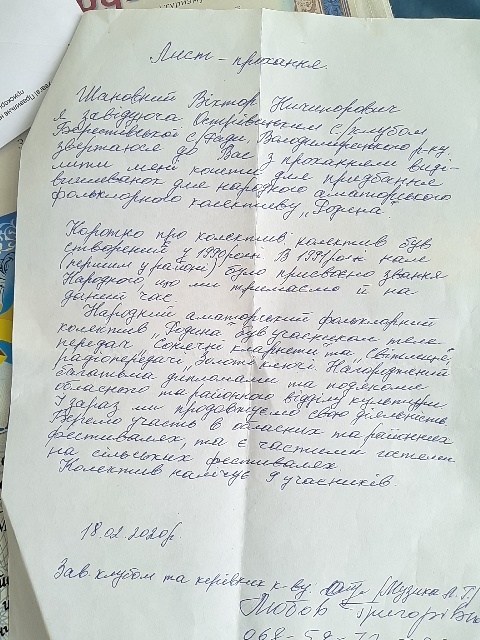 Лист-прохання.
Шановний Віктор Ничипорович
я завідуюча Острівцським с/клубом
Берестівської с/ради, Володимирецького р-ну.
звертаюся до Вас з проханням виді-
лити мені кошти для придбання
вишиванок для народного аматорського
фольклорного колективу „Родина"
Коротко про колектив колектив був
створений у 1990 році. В 1991 році нам
(першим у районі) було присвоєно звання
Народного, що ми тримаємо й на
даний час.
Народний аматорський фольклорний
колектив „Родина" був учасником теле-
передач „Сонячні кларнети та „Світлиця",
радіопередачі „Золоті ключі. Нагороджений
багатьма дипломами та подяками
обласного та районного відділу культури.
І зараз ми продовжуємо свою діяльність.
Беремо участь в обласних та районних
фестивалях, та є частими гостями
на сільських фестивалях.
Колектив налічує 9 учасників.
18.02.2020р.
Зав. клубом та керівник к-ву. (Музика Л.Г)
Любов Григорівна